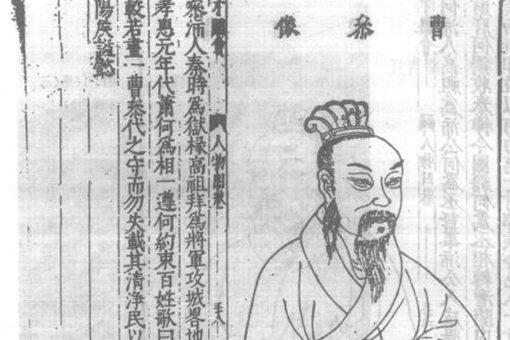 曹叅像
才圖會
人物
叅沛人秦時爲獄椽高祖拜爲將軍攻城畧地
孝惠元年代蕭何爲相一遵何約束百姓歌曰
較若畫一曹叅代之守而勿失載其清淨民以
陽矦諡懿